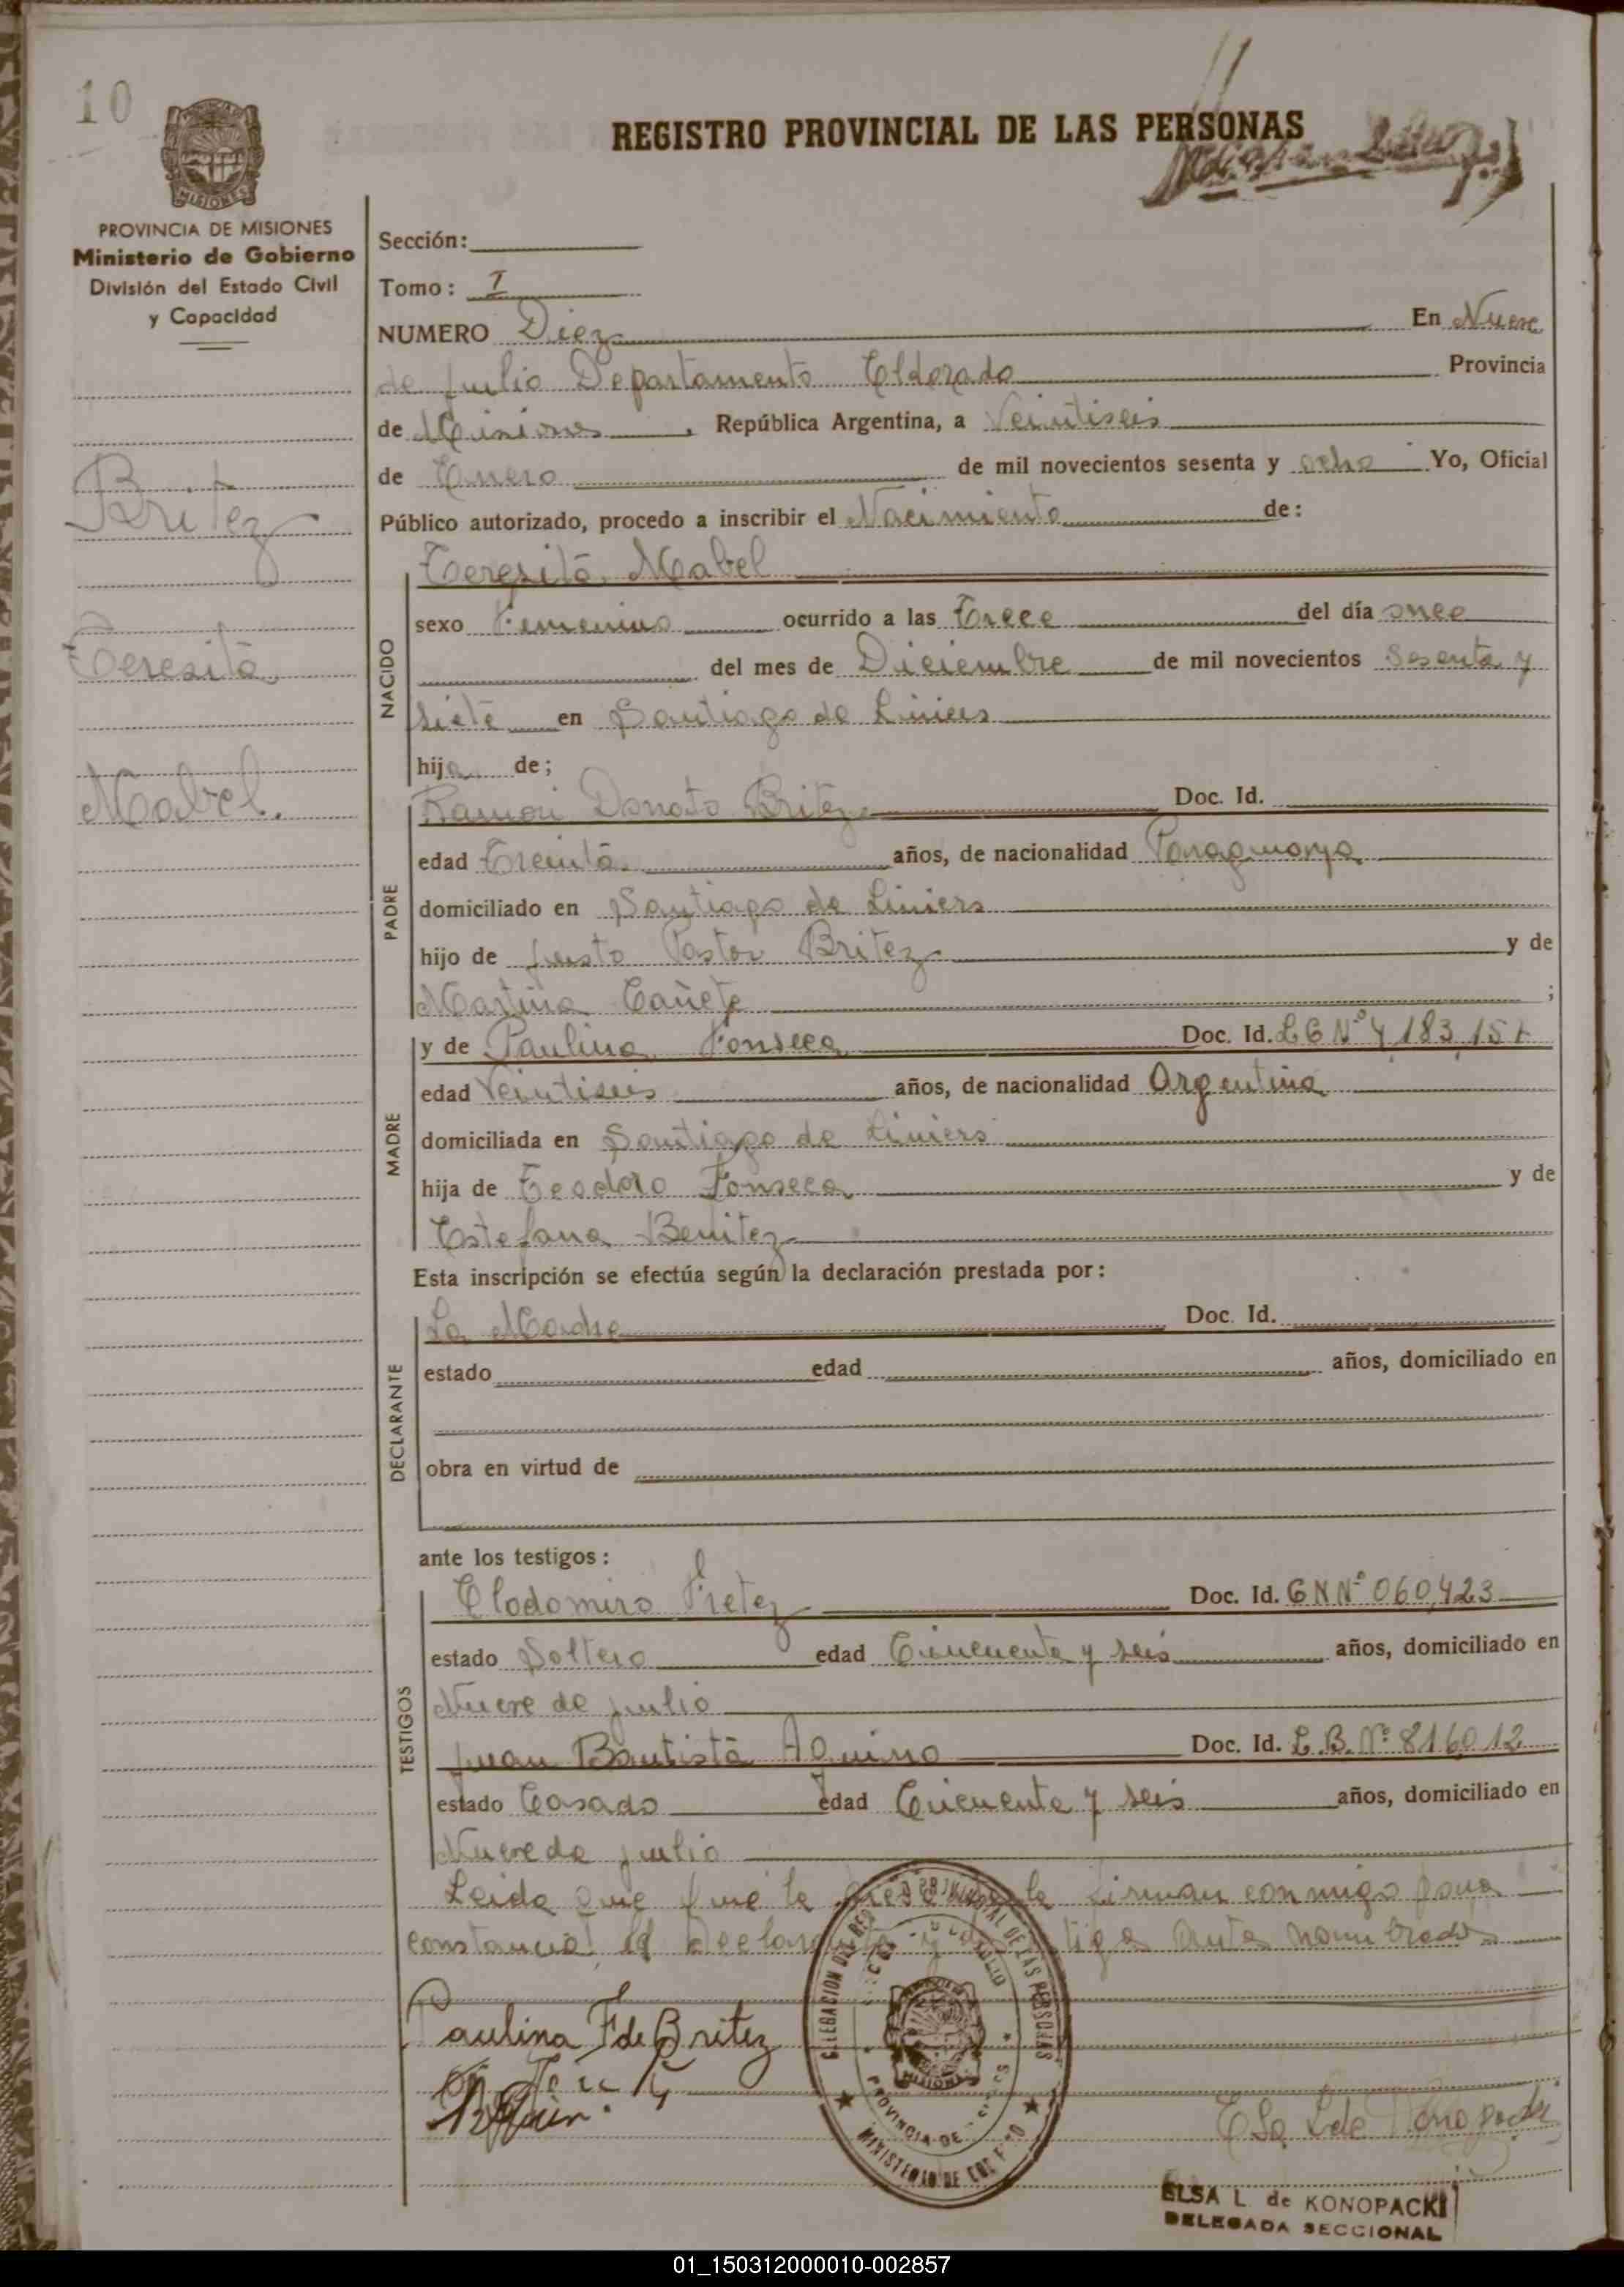 10
REGISTRO PROVINCIAL DE LAS PERSONAS
PROVINCIA DE MISIONES
Ministerio de Gobierno
División del Estado Civil
y Capacidad
Britez
Teresita
Mabel.
Sección:
Tomo: I
NUMERO Diez En Nueve
de julio Departamento Eldorado Provincia
de Misiones, República Argentina, a Veintiseis
de Enero de mil novecientos sesenta y ocho Yo, Oficial
Público autorizado, procedo a inscribir el Nacimiento de:
NACIDO
Teresita Mabel
sexo Femenino ocurrido a las Trece del día once
del mes de Diciembre de mil novecientos Sesenta y
siete en Santiago de Liniers
hija de;
PADRE
Ramon Donato Britez Doc. Id.
edad Treinta años, de nacionalidad Paraguaya
domiciliado en Santiago de Liniers
hijo de Justo Pastor Britez y de
Martina Cañete ;
MADRE
y de Paulina Fonseca Doc. Id. L C Nº 4 183 151
edad Veintiseis años, de nacionalidad Argentina
domiciliada en Santiago de Liniers
hija de Teodoro Fonseca y de
Estefana Benitez
Esta inscripción se efectúa según la declaración prestada por:
DECLARANTE
La Madre Doc. Id.
estado edad años, domiciliado en
obra en virtud de
ante los testigos:
TESTIGOS
Clodomiro Fretez Doc. Id. G N Nº 060,423
estado Soltero edad Cincuenta y seis años, domiciliado en
Nueve de julio
Juan Bautista Aquino Doc. Id. L.B. Nº 816012
estado Casado edad Cincuenta y seis años, domiciliado en
Nueve de julio
Leida que fué la presente firman conmigo para
constancia la declarante y los testigos antes nombrados
Paulina F de Britez
DELEGACION DEL REG. PROVINCIAL DE LAS PERSONAS
PROVINCIA DE MISIONES
MINISTERIO DE GOBIERNO
MISIONES
Elsa L de Konopacki
ELSA L. de KONOPACKI
DELEGADA SECCIONAL
01_150312000010-002857